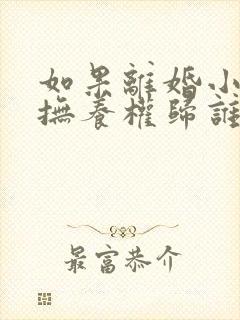 如果離婚小
撫養權歸誰
最富恭介